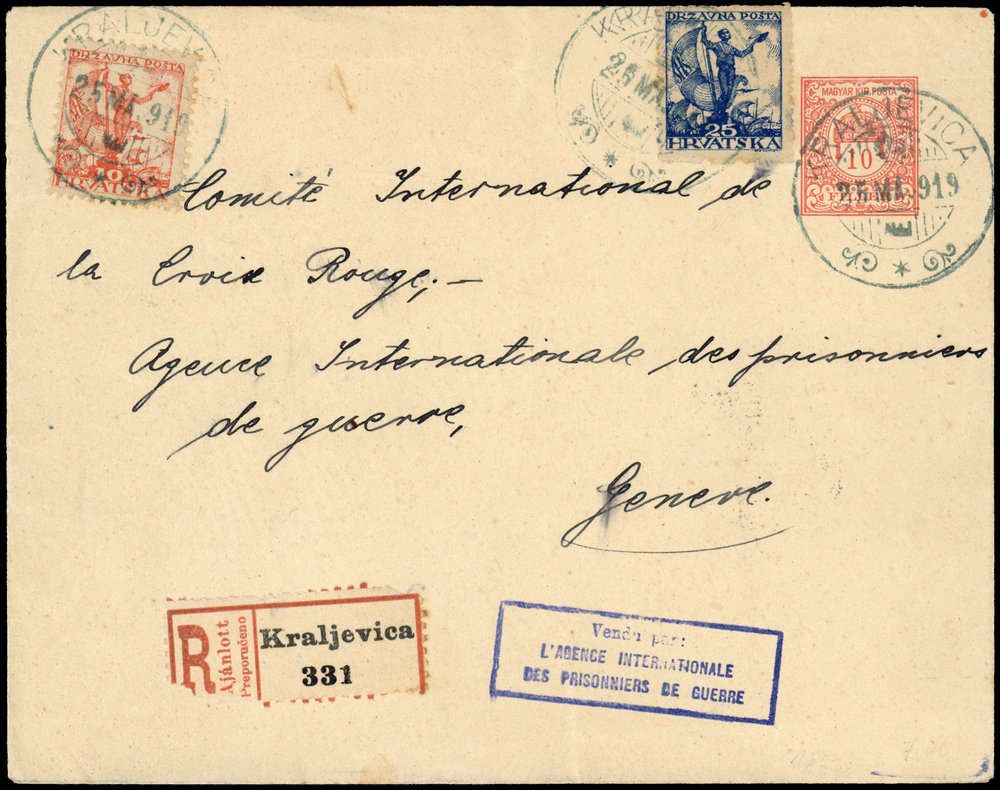 KRALJEVICA
25 MAJ. 919
DRŽAVNA POŠTA
HRVATSKA
DRŽAVNA POŠTA
25
HRVATSKA
MAGYAR KIR. POSTA
10
KRALJEVICA
919
Comité International de
la Croix Rouge,—
Agence Internationale des prisonniers
de guerre,
Geneve.
R
Ajánlott
Preporučeno
Kraljevica
331
Vendu par:
L'AGENCE INTERNATIONALE
DES PRISONNIERS DE GUERRE